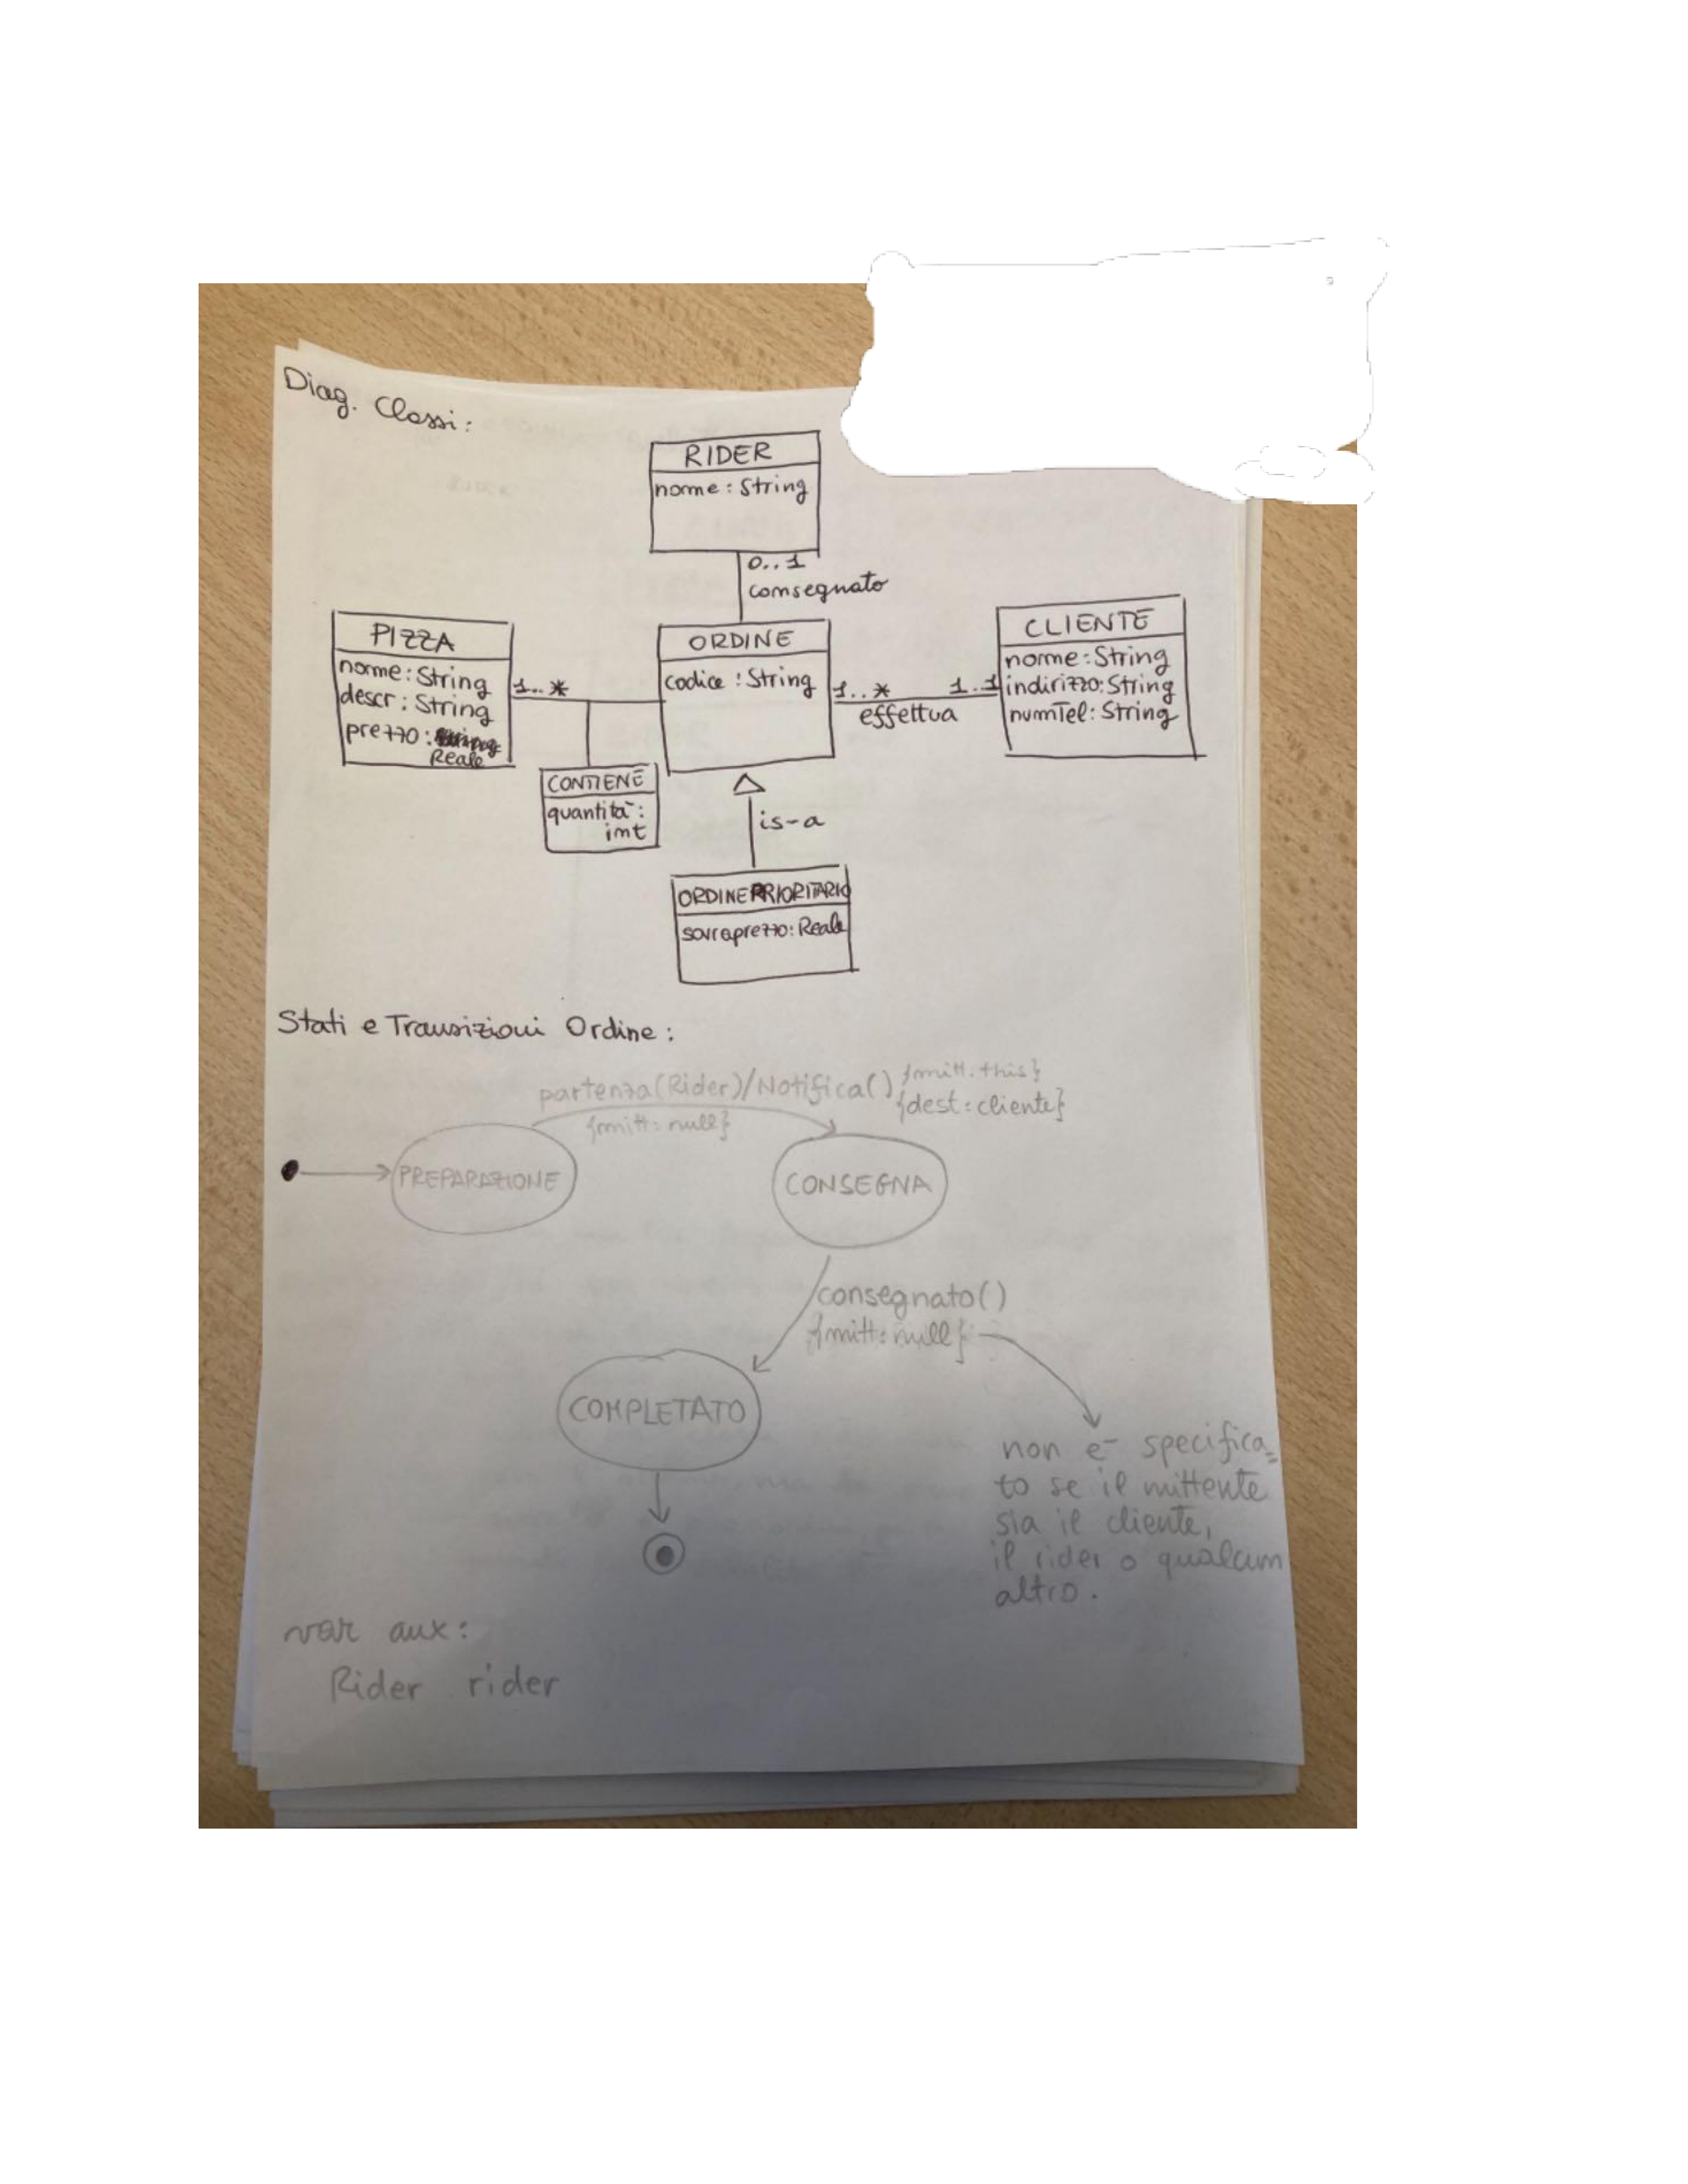 Diag. Classi:
RIDER
nome: String
0..1
consegnato
PIZZA
nome: String
descr: String
prezzo:
Reale
1..*
CONTIENE
quantità:
int
ORDINE
codice: String
1..*
1..1
effettua
CLIENTE
nome: String
indirizzo: String
numTel: String
is-a
ORDINEPRIORITARIO
sovraprezzo: Reale
Stati e Transizioni Ordine:
partenza(Rider)/Notifica() {mitt:this}
{dest:cliente}
{mitt:null}
PREPARAZIONE
CONSEGNA
consegnato()
{mitt:null}
COMPLETATO
non è specifica=
to se il mittente
sia il cliente,
il rider o qualcun
altro.
var aux:
Rider rider